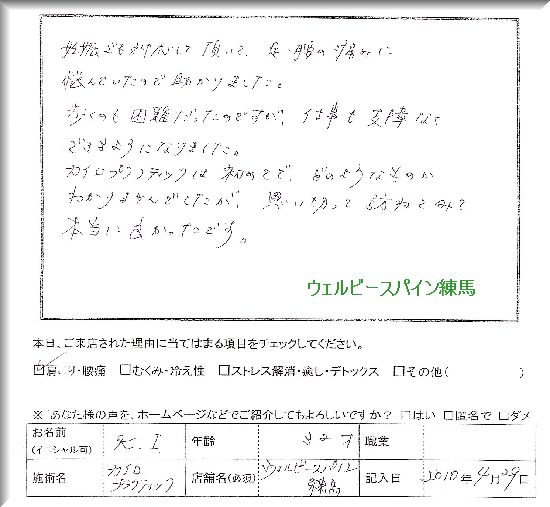 妊娠でも対応して頂いて、足・腰の痛みに
悩んでいたので助かりました。
歩くのも困難だったのですが、仕事も支障なく
できるようになりました。
カイロプラクティックは初めてで、どのようなものか
わかりませんでしたが、思い切って訪ねてみて
本当に良かったです。
ウェルビースパイン練馬
本日、ご来店された理由に当てはまる項目をチェックしてください。
☑肩こり・腰痛 □むくみ・冷え性 □ストレス解消・癒し・デトックス □その他( )
※ あなた様の声を、ホームページなどでご紹介してもよろしいですか? □はい □匿名で □ダメ
お名前 (イニシャル可) K. I 年齢 才 職業
施術名 カイロプラクティック 店舗名(必須) ウェルビースパイン練馬 記入日 2010年4月29日